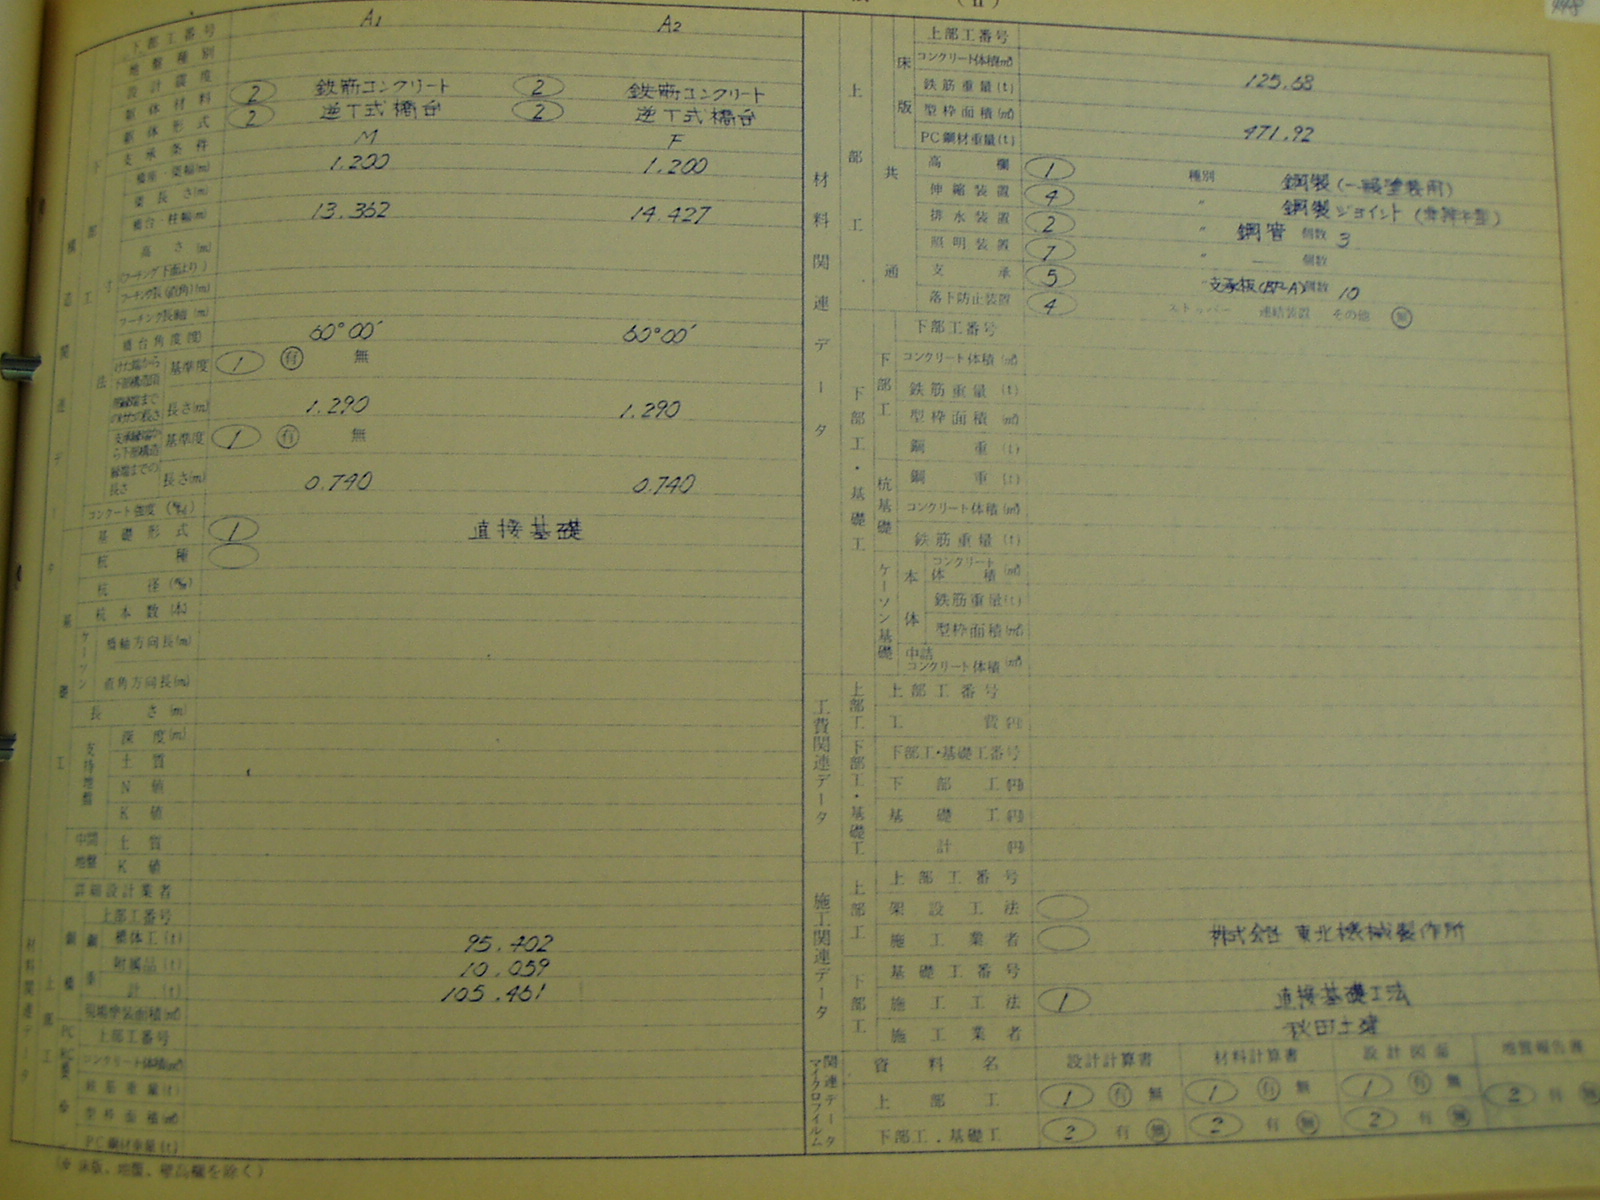 (II)
A1 A2
下部工番号
地盤種別
設計震度
躯体材料 2 鉄筋コンクリート 2 鉄筋コンクリート
躯体形式 2 逆T式橋台 2 逆T式橋台
支承条件 M F
1.200 1.200
梁長さ(m)
橋台・柱幅(m) 13.362 14.427
高さ(m)
(フーチング下面より)
フーチング長(直角)(m)
橋台角度(度) 60°00′ 60°00′
けた端から 基準度 1 有 無
長さ(m) 1.290 1.290
基準度 1 有 無
長さ(m) 0.740 0.740
基礎形式 1 直接基礎
杭種
杭径
杭本数(本)
ケーソン
橋軸方向長(m)
直角方向長(m)
長さ(m)
支持地盤
深度(m)
土質
N値
K値
中間地盤
土質
K値
詳細設計業者
材料関連データ
上部工
上部工番号
橋体工(t) 95.402
附属品(t) 10.059
計(t) 105.461
上部工番号
コンクリート体積(㎥)
鉄筋重量(t)
型枠面積(㎡)
PC鋼材重量(t)
材料関連データ
上部工
床版
上部工番号
コンクリート体積(㎥)
鉄筋重量(t) 125.68
型枠面積(㎡)
PC鋼材重量(t) 471.92
共通
高欄 1 種別 鋼製
伸縮装置 4 〃 鋼製ジョイント
排水装置 2 〃 鋼管 個数 3
照明装置 7 〃 — 個数
支承 5 個数 10
落下防止装置 4 ストッパー 連結装置 その他 無
下部工・基礎工
下部工
下部工番号
コンクリート体積(㎥)
鉄筋重量(t)
型枠面積(㎡)
鋼重(t)
杭基礎
鋼重(t)
コンクリート体積(㎥)
鉄筋重量(t)
ケーソン基礎
本体
コンクリート体積(㎥)
鉄筋重量(t)
型枠面積(㎡)
中詰コンクリート体積(㎥)
工費関連データ
上部工
上部工番号
工費(円)
下部工・基礎工
下部工・基礎工番号
下部工(円)
基礎工(円)
計(円)
施工関連データ
上部工
上部工番号
架設工法
施工業者 株式会社 東北機械製作所
下部工
基礎工番号
施工工法 1 直接基礎工法
施工業者 秋田土建
マイクロフイルム関連データ
資料名 設計計算書 材料計算書 設計図面 地質報告書
上部工 1 有 無 1 有 無 1 有 無 2 有 無
下部工・基礎工 2 有 無 2 有 無 2 有 無